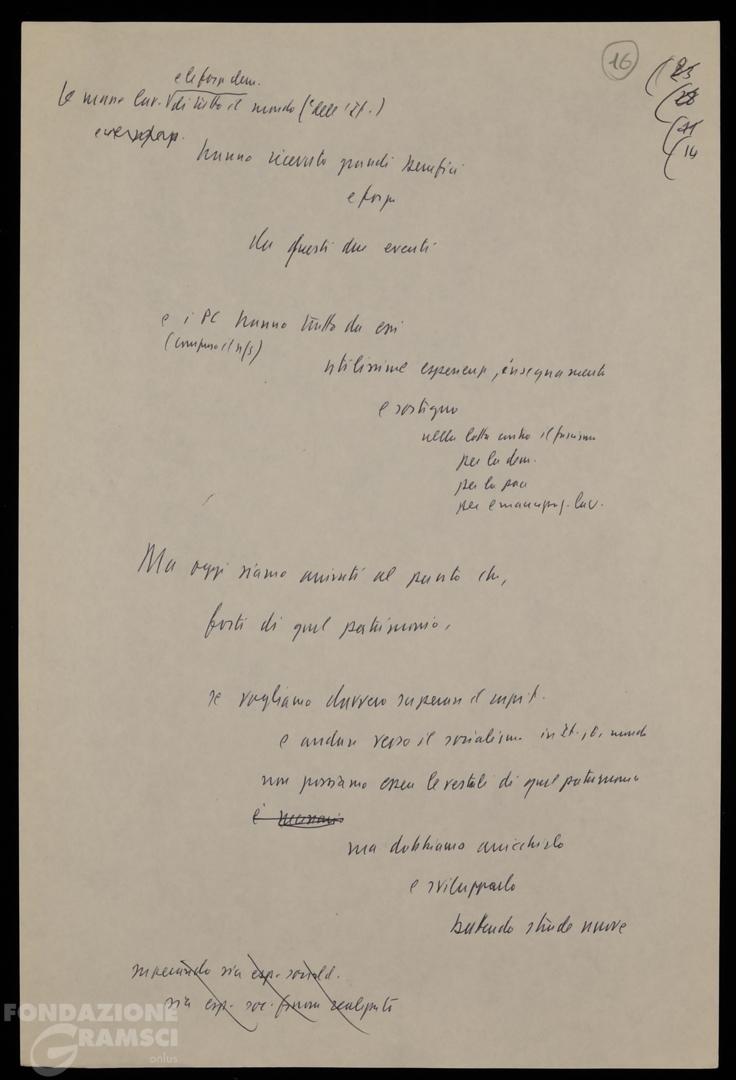 16
25
28
21
14
e le forze dem.
Le masse lav. di tutto il mondo (e dell'It.)
hanno ricevuto grandi benefici
e forza
da questi due eventi
e i PC hanno tratto da essi
(compreso il n/s)
utilissime esperienze, insegnamenti
e sostegno
nella lotta contro il fascismo
per la dem.
per la pace
per emancipaz. lav.
Ma oggi siamo arrivati al punto che,
forti di quel patrimonio,
se vogliamo davvero superare il capit.
e andare verso il socialismo in It., mondo
non possiamo essere le vestali di quel patrimonio
è necessario
ma dobbiamo arricchirlo
e svilupparlo
battendo strade nuove
superando sia esp. sociald.
sia esp. soc. finora realizzati
FONDAZIONE
GRAMSCI
onlus